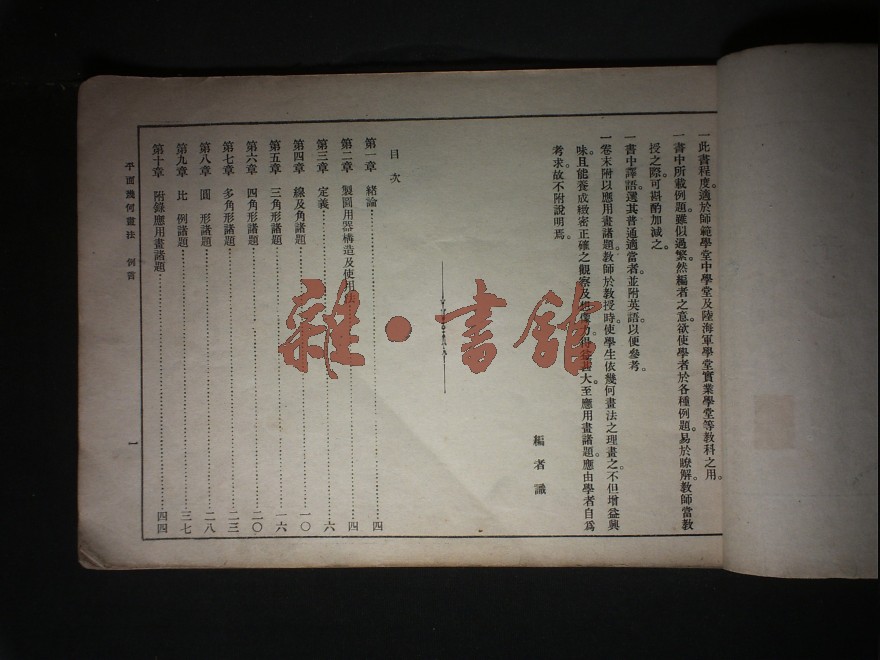 一此書程度。適於師範學堂中學堂及陸海軍學堂實業學堂等教科之用。
一書中所載例題。雖似過繁。然編者之意。欲使學者於各種例題。易於瞭解。教師當教
授之際。可斟酌加減之。
一書中譯語。選其普通適當者。並附英語。以便參考。
一卷末附以應用畫諸題。教師於教授時。使學生依幾何畫法之理畫之。不但增益興
味。且能養成緻密正確之觀察及想像力。得益甚大。至應用畫諸題。應由學者自爲
考求。故不附說明焉。
編者識
目次
第一章 緒論 四
第二章 製圖用器構造及使用法 四
第三章 定義 六
第四章 線及角諸題 一〇
第五章 三角形諸題 一六
第六章 四角形諸題 二〇
第七章 多角形諸題 二三
第八章 圓形諸題 二八
第九章 比例諸題 三七
第十章 附錄應用畫諸題 四四
平面幾何畫法 例言
一
雜·書館